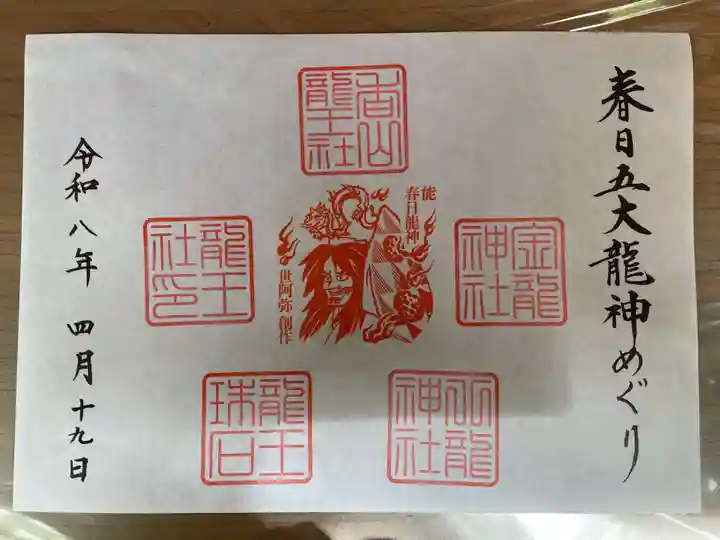 春日五大龍神めぐり
香山
龍王社
能
春日龍神
世阿弥 創作
金龍
神社
龍王
社印
龍王
珠石
神社
令和八年 四月十九日